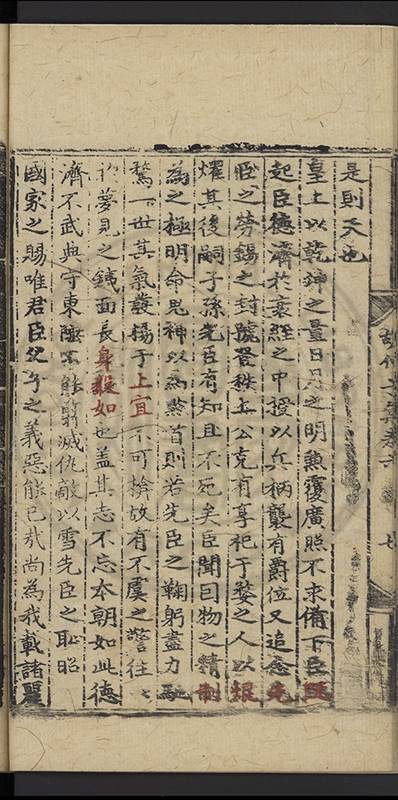 是則天也
皇上以乾坤之量日月之明燾覆廣照不求備下臣
起臣德濟於衰絰之中授以兵柄襲有爵位又追念先
臣之勞錫之封號登秩上公克有享祀于婺之人以焜
燿其後嗣子孫先臣有知且不死矣臣聞曰物之精制
為之極明命鬼神以為黔首則若先臣之鞠躬盡力馳
騖一世其氣發揚于上宜不可揜故有不虞之警往〻
於夢見之鐵面長身如也蓋其志不忘本朝如此德
濟不武典守東陲不能翦滅仇敵以雪先臣之恥昭
國家之賜唯君臣父子之義惡能已哉尚為我載諸麗